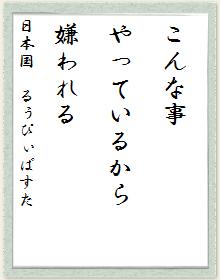 こんな事
やっているから
嫌われる
日本国　るぅびぃぱすた